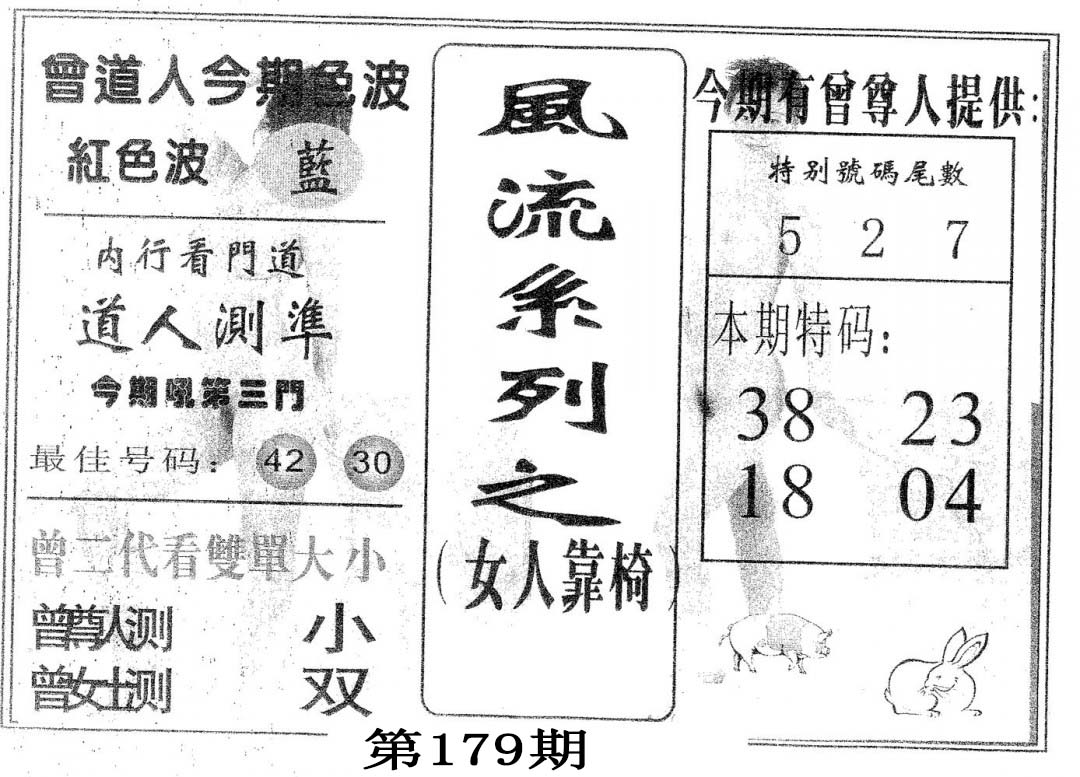 曾道人今期色波
紅色波 藍
内行看門道
道人測準
今期吼第三門
最佳号码: 42 30
曾二代看雙單大小
曾尊人测 小
曾女士测 双
風流系列之
(女人靠椅)
今期有曾尊人提供:
特别號碼尾數
5 2 7
本期特码:
38 23
18 04
第179期